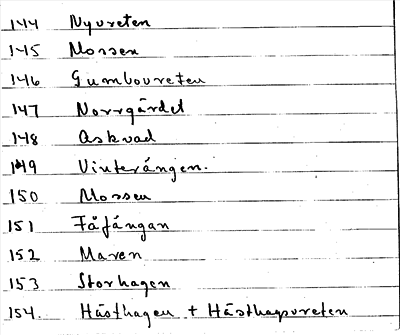 144 Nyvreten
145 Mossen
146 Gumbovreten
147 Norrgärdet
148 Askvad
149 Vinterängen.
150 Mossen
151 Fåfängan
152 Maren
153 Storhagen
154. Hästhagen + Hästhagvreten